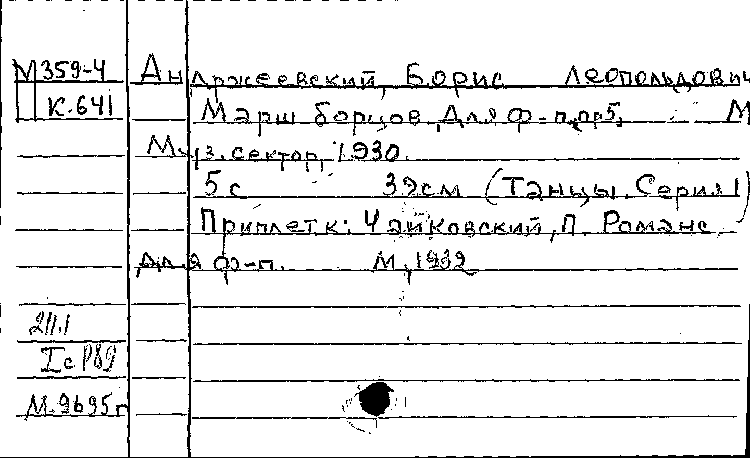 М359-4 Андржеевский, Борис Леопольдович
К.641 Марш борцов, Для ф-п, ор5, М
Муз.сектор, 1930.
5 с 39см (Танцы. Серия 1)
Приплет к: Чайковский, П. Романс
для ф-п. М, 1932
211.1
Iс Р89
М.9695г